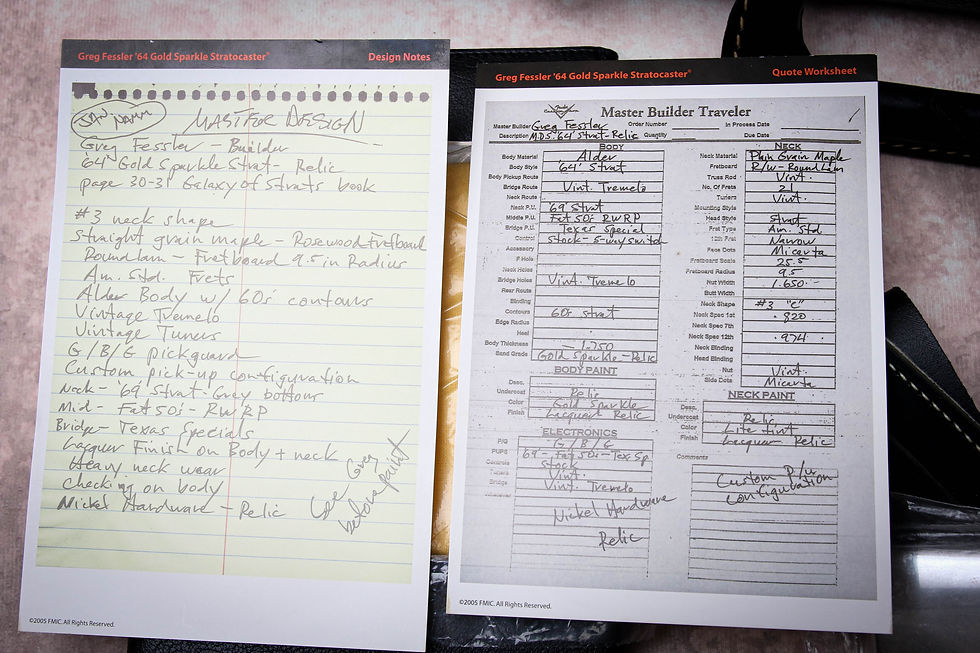 Greg Fessler '64 Gold Sparkle Stratocaster® Design Notes
JAN NAMM
MASTER DESIGN
Greg Fessler - Builder
'64 Gold Sparkle Strat - Relic
page 30-31 Galaxy of Strats book
#3 neck shape
Straight grain maple - Rosewood Fretboard
Roundlam - Fretboard 9.5 in Radius
Am. Std. Frets
Alder Body w/ 60s contours
Vintage Tremelo
Vintage Tuners
G/B/G pickguard
Custom pick-up configuration
Neck - '69 Strat - Grey bottom
Mid - Fat 50s - RWRP
Bridge - Texas Specials
Lacquer Finish on Body + neck
Heavy neck wear
Checking on body
Nickel Hardware - Relic
Greg
before paint
©2005 FMIC. All Rights Reserved.
Greg Fessler '64 Gold Sparkle Stratocaster® Quote Worksheet
Master Builder Traveler
Master Builder Greg Fessler Order Number In Process Date
Description M.D.S. 64' Strat-Relic Quantity Due Date
BODY
Body Material Alder
Body Style '64' Strat
Body Pickup Route
Bridge Route Vint. Tremelo
Neck Route
Neck P.U. '69 Strat
Middle P.U. Fat 50s RWRP
Bridge P.U. Texas Special
Control Stock - 5-way switch
Accessory
F Hole
Neck Holes
Bridge Holes Vint. Tremelo
Rear Route
Binding
Contours 60s Strat
Edge Radius
Heel
Body Thickness 1.750
Band Grade Gold Sparkle - Relic
BODY PAINT
Desc.
Undercoat Relic
Color Gold Sparkle
Finish Lacquer Relic
ELECTRONICS
P/G G/B/G
PUPS 69 - Fat 50s - Tex Sp
Controls Stock
Tuners Vint.
Bridge Vint. Tremelo
Nickel Hardware
Relic
NECK
Neck Material Plain Grain Maple
Fretboard R/W - Roundlam
Truss Rod Vint.
No. Of Frets 21
Tuners Vint.
Mounting Style
Head Style Strat
Fret Type Am. Std.
12th Fret Narrow
Face Dots Micarta
Fretboard Scale 25.5
Fretboard Radius 9.5
Nut Width 1.650
Butt Width
Neck Shape #3 "C"
Neck Spec 1st .820
Neck Spec 7th
Neck Spec 12th .974
Neck Binding
Head Binding
Nut Vint.
Side Dots Micarta
NECK PAINT
Desc.
Undercoat Relic
Color Lite Tint
Finish Lacquer Relic
Comments
Custom P/u
configuration
©2005 FMIC. All Rights Reserved.